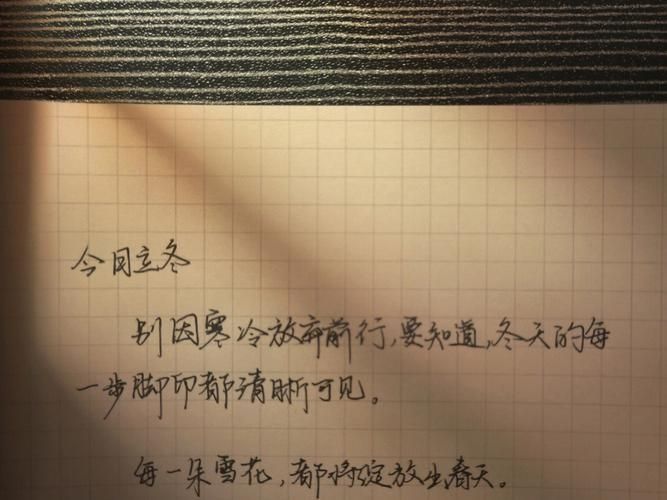 今日立冬
别因寒冷放弃前行,要知道,冬天的每
一步脚印都清晰可见。
每一朵雪花,都将绽放出春天。